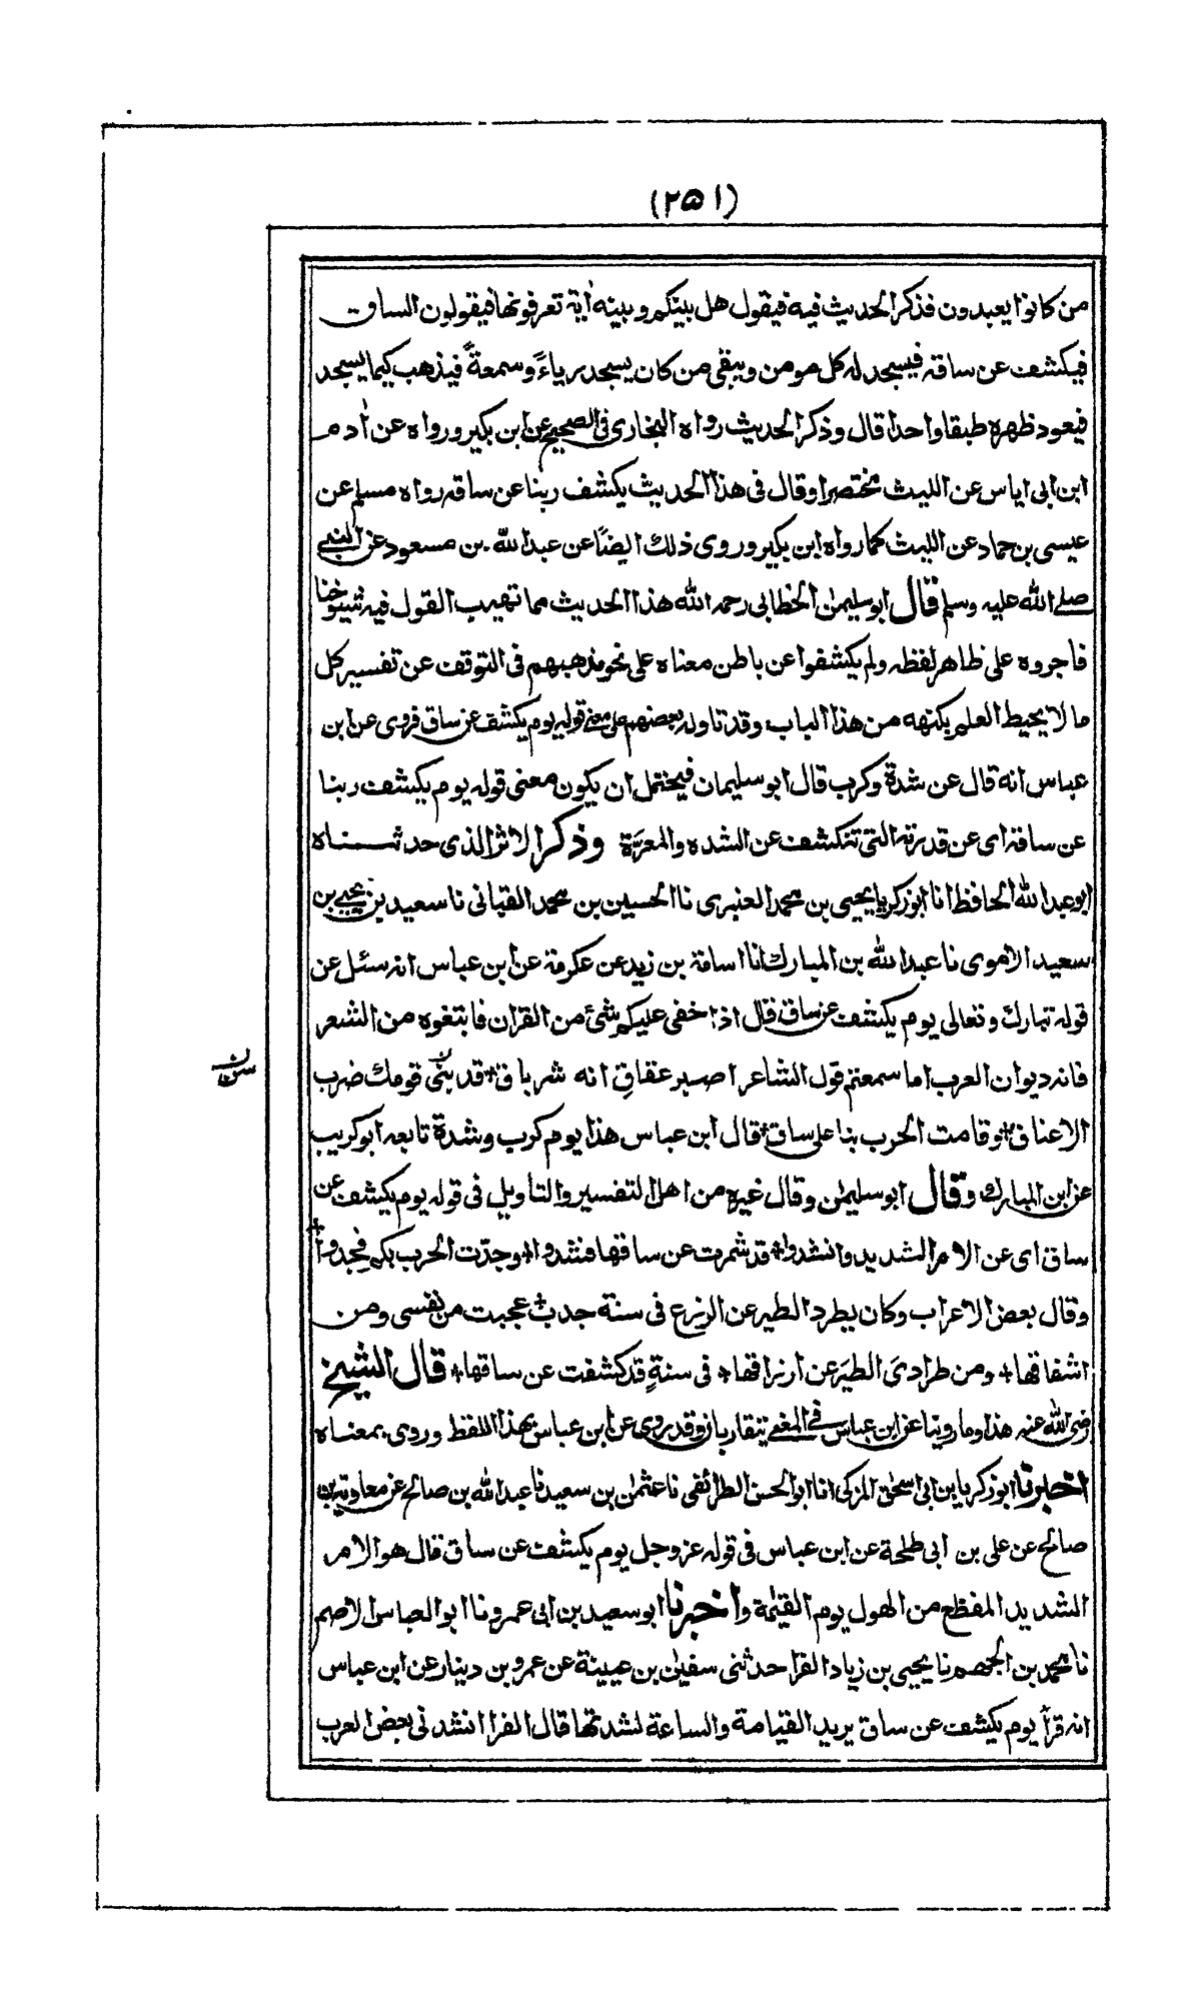 (٢٥١)
من كانوا يعبدون فذكر الحديث فيه فيقول هل بينكم وبينه اٰية تعرفونها فيقولون الساق
فيكشف عن ساقه فيسجد له كل مومن ويبقى من كان يسجد رياءً وسمعةً فيذهب كيما يسجد
فيعود ظهره طبقا واحدا قال وذكر الحديث رواه البخارى فى الصحيح عن ابن بكير ورواه عن اٰدم
ابن ابى اياس عن الليث مختصرا وقال فى هذا الحديث يكشف ربنا عن ساقه رواه مسلم عن
عيسى بن حماد عن الليث كما رواه ابن بكير وروى ذلك ايضًا عن عبد الله بن مسعود عن النبى
صلے الله عليه وسلم قال ابو سليمٰن الخطابى رحمه الله هذا الحديث مما تهيب القول فيه شيوخنا
فاجروه على ظاهر لفظه ولم يكشفوا عن باطن معناه على نحو مذهبهم فى التوقف عن تفسير كل
ما لا يحيط العلم بكنهه من هذا الباب وقد تاوله بعضهم على معنى قوله يوم يكشف عن ساق فروى عن ابن
عباس انه قال عن شدة وكرب قال ابو سليمان فيحتمل ان يكون معنى قوله يوم يكشف ربنا
عن ساقه اى عن قدرته التى تنكشف عن الشده والمعرّة وذكر الاثر الذى حدثناه
ابو عبد الله الحافظ انا ابو زكريا يحيى بن محمد العنبرى نا الحسين بن محمد القبانى نا سعيد بن يحيى بن
سعيد الاموى نا عبد الله بن المبارك انا اسامة بن زيد عن عكرمة عن ابن عباس انه سئل عن
قوله تبارك وتعالى يوم يكشف عن ساق قال اذا خفى عليكم شئ من القران فابتغوه من الشعر
فانه ديوان العرب اما سمعتم قول الشاعر اصبر عقاق انه شر باق + قد سنّ لى قومك ضرب
الاعناق + وقامت الحرب بنا على ساق + قال ابن عباس هذا يوم كرب وشدة تابعه ابو كريب
عن ابن المبارك وقال ابو سليمٰن وقال غيره من اهل التفسير والتاويل فى قوله يوم يكشف عن
ساق اى عن الامر الشديد وانشدوا + قد شمرت عن ساقها فشدوا + وجدّت الحرب بكم فجدوا +
وقال بعض الاعراب وكان يطرد الطير عن الزرع فى سنة جدب + عجبت من نفسى ومن
اشفاقها + ومن طرادى الطيَر عن ارزاقها + فى سنةٍ قد كشفت عن ساقها + قال الشيخ
رضى الله عنه هذا وما روينا عن ابن عباس فى المعنى يتقاربان وقد روى عن ابن عباس بهذا اللفظ وروى بمعناه
اخبرنا ابو زكريا بن ابى اسحٰق المزكى انا ابو الحسن الطرائفى نا عثمٰن بن سعيد نا عبد الله بن صالح عن معاوية بن
صالح عن على بن ابى طلحة عن ابن عباس فى قوله عز وجل يوم يكشف عن ساق قال هو الامر
الشديد المفظع من الهول يوم القيٰمة واخبرنا ابو سعيد بن ابى عمرو نا ابو العباس الاصم
نا محمد بن الجهم نا يحيى بن زياد الفرا حدثنى سفيٰن بن عيينة عن عمرو بن دينار عن ابن عباس
انه قرأ يوم يكشف عن ساق يريد القيامة والساعة لشدتها قال الفرا انشدنى بعض العرب